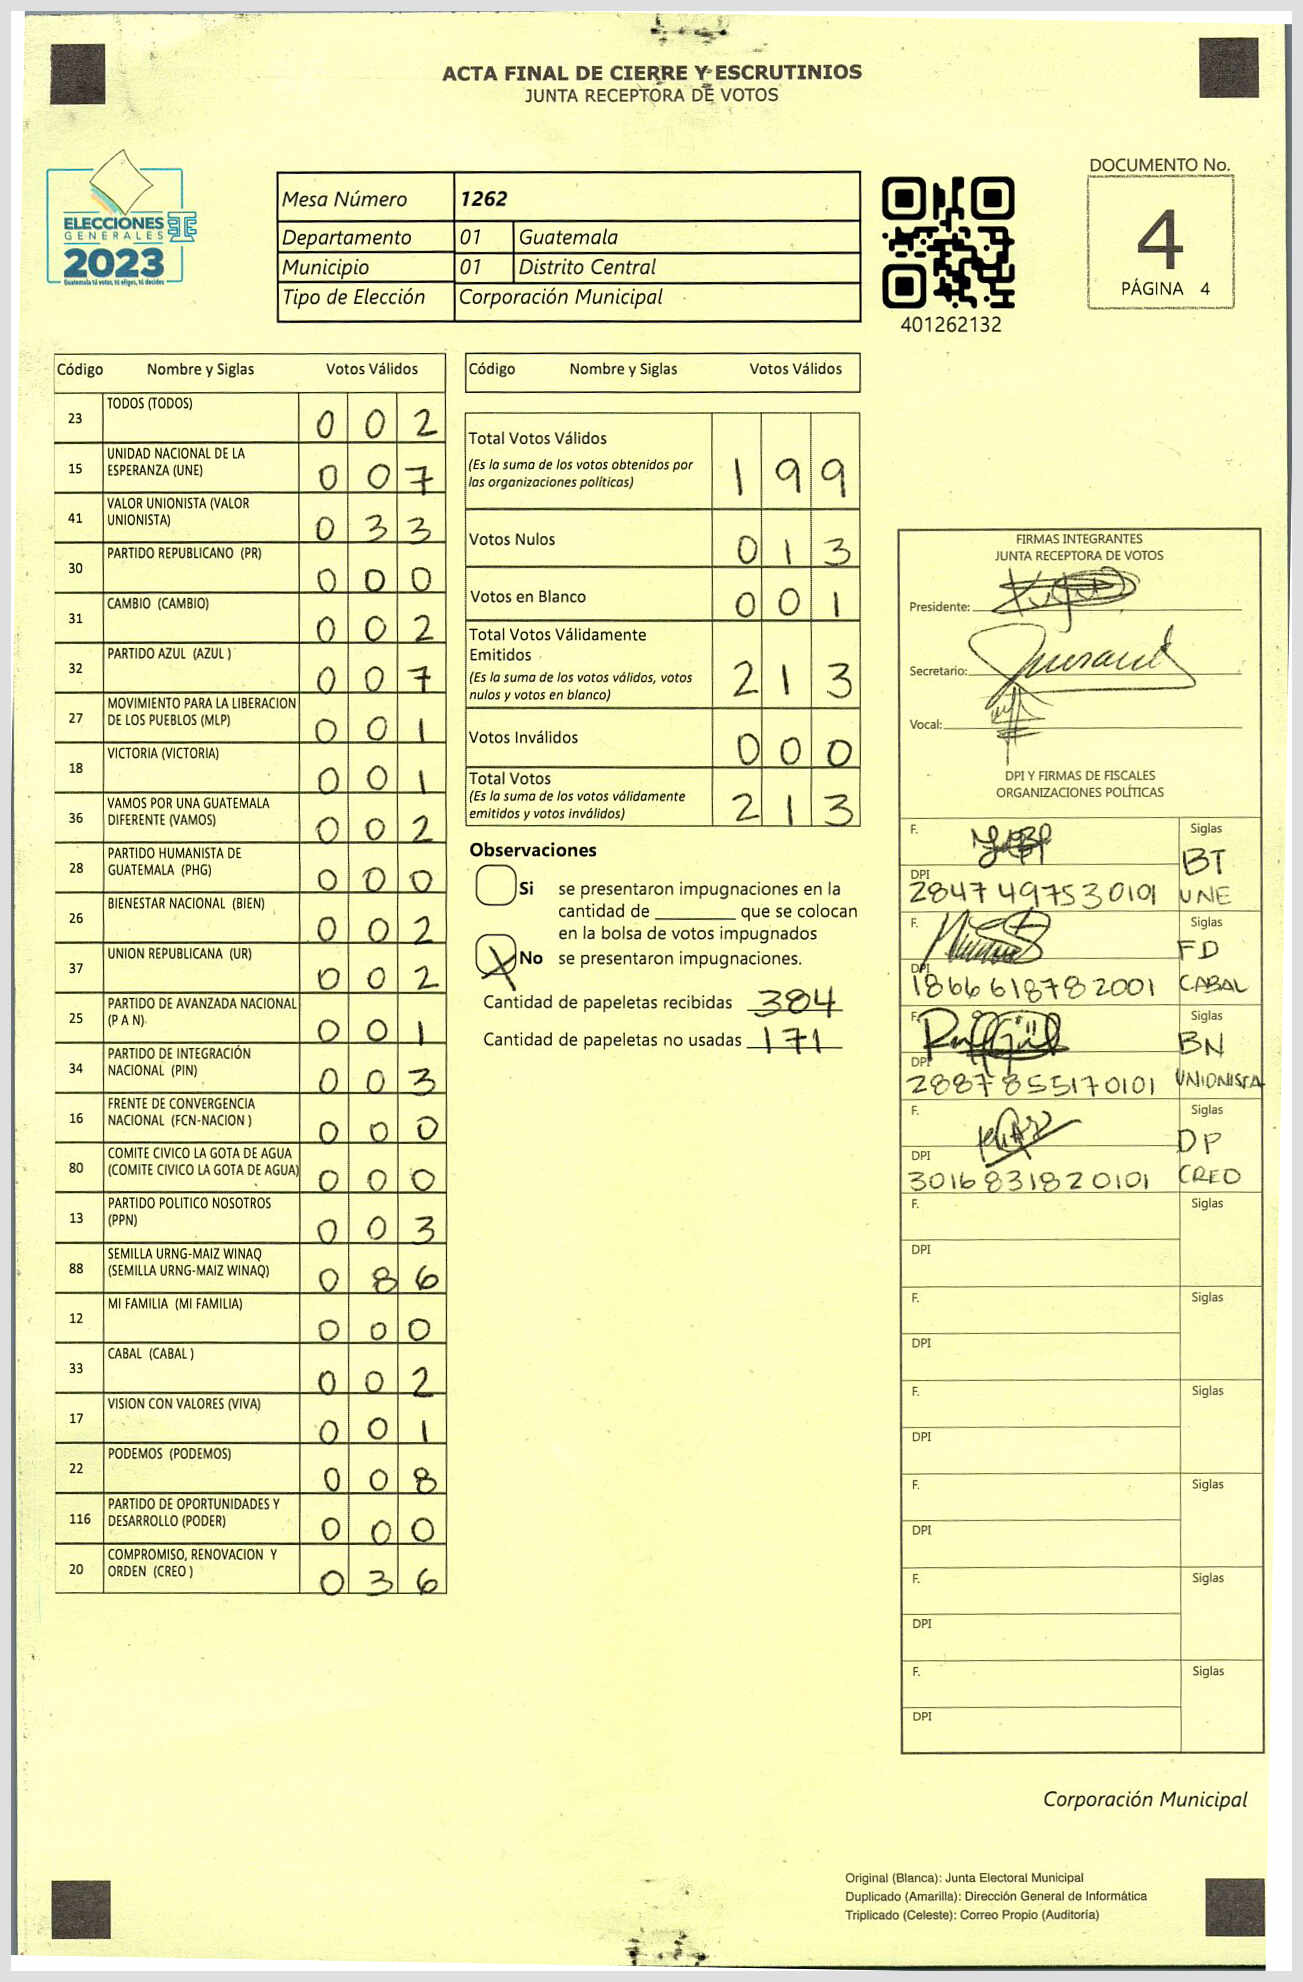 ACTA FINAL DE CIERRE Y ESCRUTINIOS
JUNTA RECEPTORA DE VOTOS
ELECCIONES
GENERALES
2023
Guatemala tú votas, tú eliges, tú decides
Mesa Número 1262
Departamento 01 Guatemala
Municipio 01 Distrito Central
Tipo de Elección Corporación Municipal
401262132
DOCUMENTO No.
4
PÁGINA 4
Código Nombre y Siglas Votos Válidos
23 TODOS (TODOS) 0 0 2
15 UNIDAD NACIONAL DE LA
ESPERANZA (UNE) 0 0 7
41 VALOR UNIONISTA (VALOR
UNIONISTA) 0 3 3
30 PARTIDO REPUBLICANO (PR) 0 0 0
31 CAMBIO (CAMBIO) 0 0 2
32 PARTIDO AZUL (AZUL ) 0 0 7
27 MOVIMIENTO PARA LA LIBERACION
DE LOS PUEBLOS (MLP) 0 0 1
18 VICTORIA (VICTORIA) 0 0 1
36 VAMOS POR UNA GUATEMALA
DIFERENTE (VAMOS) 0 0 2
28 PARTIDO HUMANISTA DE
GUATEMALA (PHG) 0 0 0
26 BIENESTAR NACIONAL (BIEN) 0 0 2
37 UNION REPUBLICANA (UR) 0 0 2
25 PARTIDO DE AVANZADA NACIONAL
(P A N) 0 0 1
34 PARTIDO DE INTEGRACIÓN
NACIONAL (PIN) 0 0 3
16 FRENTE DE CONVERGENCIA
NACIONAL (FCN-NACION ) 0 0 0
80 COMITE CIVICO LA GOTA DE AGUA
(COMITE CIVICO LA GOTA DE AGUA) 0 0 0
13 PARTIDO POLITICO NOSOTROS
(PPN) 0 0 3
88 SEMILLA URNG-MAIZ WINAQ
(SEMILLA URNG-MAIZ WINAQ) 0 8 6
12 MI FAMILIA (MI FAMILIA) 0 0 0
33 CABAL (CABAL ) 0 0 2
17 VISION CON VALORES (VIVA) 0 0 1
22 PODEMOS (PODEMOS) 0 0 8
116 PARTIDO DE OPORTUNIDADES Y
DESARROLLO (PODER) 0 0 0
20 COMPROMISO, RENOVACION Y
ORDEN (CREO ) 0 3 6
Código Nombre y Siglas Votos Válidos
Total Votos Válidos
(Es la suma de los votos obtenidos por
las organizaciones políticas) 1 9 9
Votos Nulos 0 1 3
Votos en Blanco 0 0 1
Total Votos Válidamente
Emitidos
(Es la suma de los votos válidos, votos
nulos y votos en blanco) 2 1 3
Votos Inválidos 0 0 0
Total Votos
(Es la suma de los votos válidamente
emitidos y votos inválidos) 2 1 3
Observaciones
Si se presentaron impugnaciones en la
cantidad de ________ que se colocan
en la bolsa de votos impugnados
X No se presentaron impugnaciones.
Cantidad de papeletas recibidas 384
Cantidad de papeletas no usadas 171
FIRMAS INTEGRANTES
JUNTA RECEPTORA DE VOTOS
Presidente:
Secretario:
Vocal:
DPI Y FIRMAS DE FISCALES
ORGANIZACIONES POLÍTICAS
F. Siglas
BT
DPI
2847 49753 0101 UNE
F. Siglas
FD
DPI
1866618782001 CABAL
F. Siglas
BN
DPI
2887855170101 UNIONISTA
F. Siglas
DP
DPI
3016831820101 CREO
F. Siglas
DPI
F. Siglas
DPI
F. Siglas
DPI
F. Siglas
DPI
F. Siglas
DPI
F. Siglas
DPI
Corporación Municipal
Original (Blanca): Junta Electoral Municipal
Duplicado (Amarilla): Dirección General de Informática
Triplicado (Celeste): Correo Propio (Auditoría)